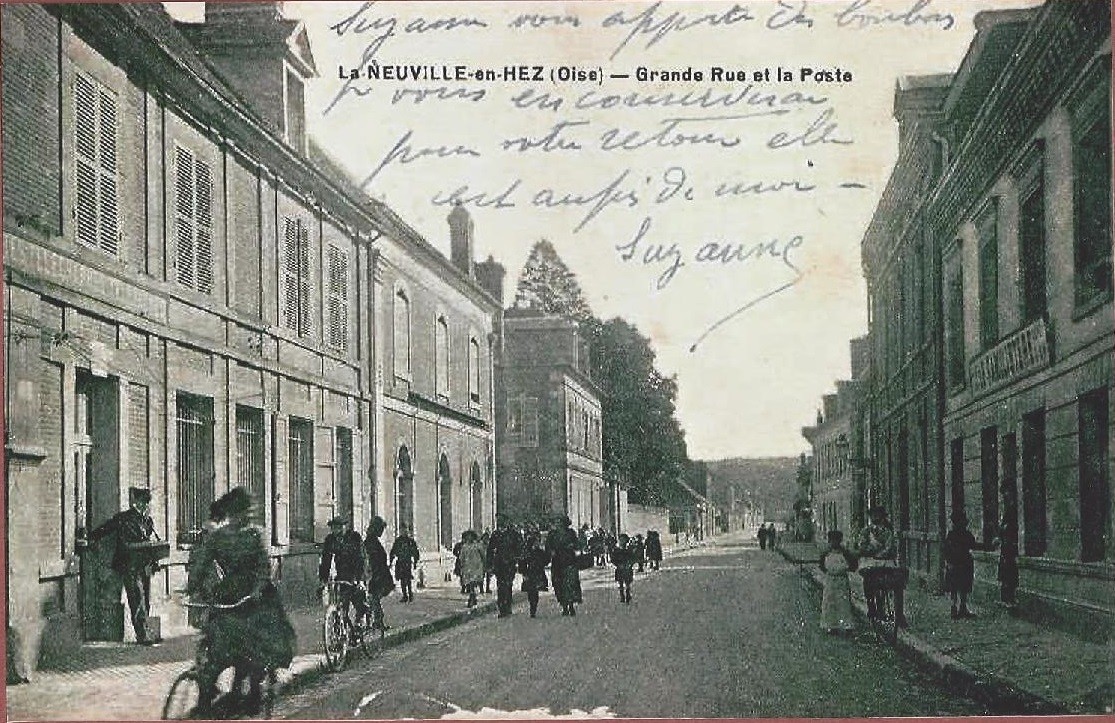 Suzanne vous apporte des bonbons
La NEUVILLE-en-HEZ (Oise) — Grande Rue et la Poste
vous en conservera
pour votre retour elle
est aussi de moi —
Suzanne